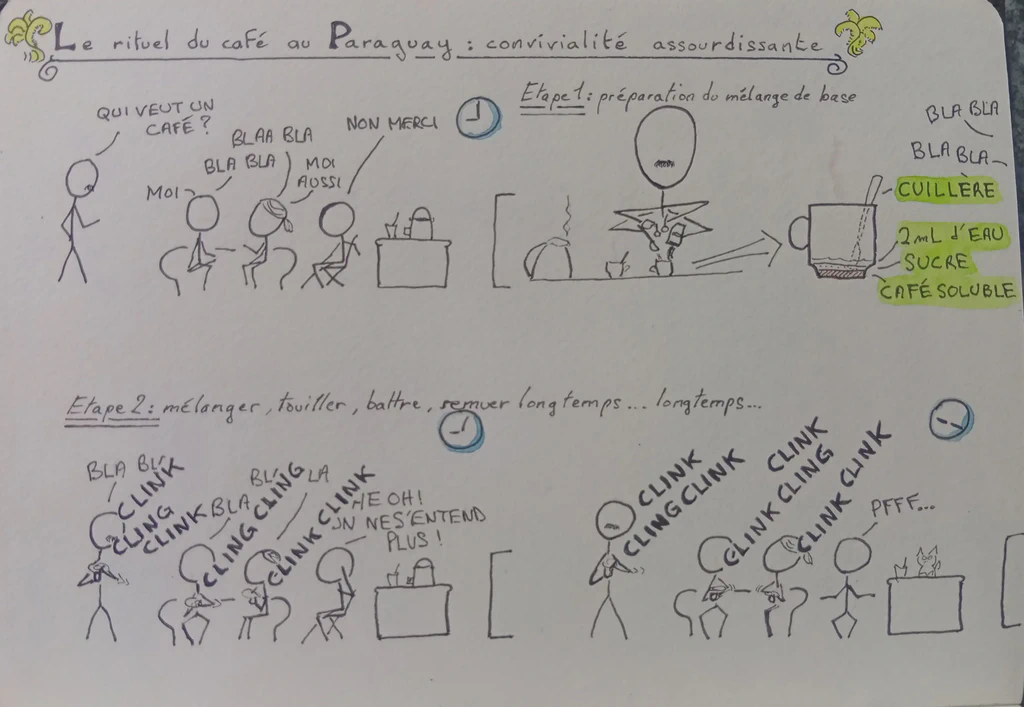 Le rituel du café au Paraguay : convivialité assourdissante
QUI VEUT UN
CAFÉ ?
BLAA BLA
BLA BLA
MOI
MOI
AUSSI
NON MERCI
Etape 1 : préparation du mélange de base
BLA BLA
BLA BLA
CUILLÈRE
2mL d'EAU
SUCRE
CAFÉ SOLUBLE
Etape 2 : mélanger, touiller, battre, remuer longtemps... longtemps...
BLA BL
CLINK
CLING
CLINK
BLA
BL LA
CLING CLING
CLINK CLINK
HE OH !
ON NE S'ENTEND
PLUS !
CLINK
CLING CLINK
CLINK
CLINK CLING
CLINK CLINK
PFFF...